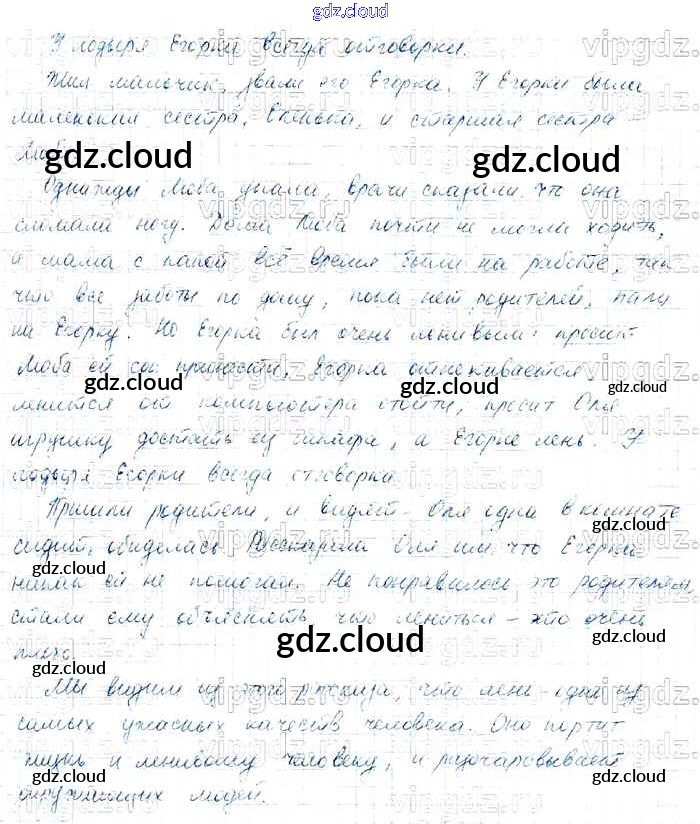 gdz.cloud
У лодыря Егорки всегда отговорки.
Жил мальчик, звали его Егорка. У Егорки были
маленькая сестра, Оленька, и старшая сестра
Люба.
gdz.cloud gdz.cloud
Однажды Люба упала, врачи сказали, что она
сломала ногу. Дома Люба почти не могла ходить,
а мама с папой всё время были на работе, так
что все заботы по дому, пока нет родителей, пали
на Егорку. Но Егорка был очень ленивым: просит
Люба ей принести, Егорка отнекивается,
gdz.cloud gdz.cloud gdz.cloud
ленится от компьютера отойти, просит Оля
игрушку достать ей, а Егорке лень. У
лодыря Егорки всегда отговорка.
Пришли родители, и видят - Оля одна в комнате
gdz.cloud
сидит, обиделась. Рассказала Оля им, что Егорка
никак ей не помогал. Не понравилось это родителям,
стали ему объяснять, что лениться - это очень
плохо.
gdz.cloud gdz.cloud
Мы видим из этого рассказа, что лень - одно из
самых ужасных качеств человека. Оно портит
жизнь и ленивому человеку, и разочаровывает
gdz.cloud gdz.cloud gdz.cloud
окружающих людей.